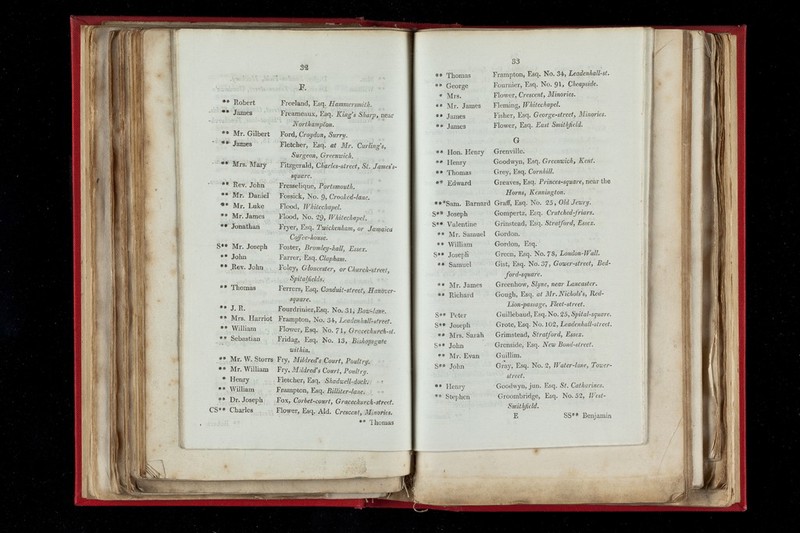 32
F.
** Robert Freeland, Esq. Hammersmith.
** James Freameaux, Esq. King's Sharp, near
Northampton.
** Mr. Gilbert Ford, Croydon, Surry.
** James Fletcher, Esq. at Mr. Carling's,
Surgeon, Greenwich.
** Mrs. Mary Fitzgerald, Charles-street, St. James's-
square.
** Rev. John Fresselique, Portsmouth.
** Mr. Daniel Fossick, No. 9, Crooked-lane.
** Mr. Luke Flood, Whitechapel.
** Mr. James Flood, No. 29, Whitechapel.
** Jonathan Fryer, Esq. Twickenham, or Jamaica
Coffee-house.
S** Mr. Joseph Foster, Bromley-hall, Essex.
** John Farrer, Esq. Clapham.
** Rev. John Foley, Gloucester, or Church-street,
Spitalfields.
** Thomas Ferrers, Esq. Conduit-street, Hanover-
square.
** J. R. Fourdrinier, Esq. No. 31, Bow-lane.
** Mrs. Harriot Frampton, No. 34, Leadenhall-street.
** William Flower, Esq. No. 71, Gracechurch-st.
** Sebastian Fridag, Esq. No. 13, Bishopsgate
within.
** Mr. W. Storrs Fry, Mildred's Court, Poultry.
** Mr. William Fry, Mildred's Court, Poultry.
* Henry Fletcher, Esq. Shadwell-dock.
** William Frampton, Esq. Billiter-lane.
** Dr. Joseph Fox, Corbet-court, Gracechurch-street.
CS** Charles Flower, Esq. Ald. Crescent, Minories.
** Thomas
33
** Thomas Frampton, Esq. No. 34, Leadenhall-st.
** George Fournier, Esq. No. 91, Cheapside.
* Mrs. Flower, Crescent, Minories.
** Mr. James Fleming, Whitechapel.
** James Fisher, Esq. George-street, Minories.
** James Flower, Esq. East Smithfield.
G
** Hon. Henry Grenville.
** Henry Goodwyn, Esq. Greenwich, Kent.
** Thomas Grey, Esq. Cornhill.
** Edward Greaves, Esq. Princes-square, near the
Horns, Kennington.
***Sam. Barnard Graff, Esq. No. 25, Old Jewry.
S** Joseph Gompertz, Esq. Crutched-friars.
S** Valentine Grimstead, Esq. Stratford, Essex.
** Mr. Samuel Gordon.
** William Gordon, Esq.
S** Joseph Green, Esq. No. 78, London-Wall.
** Samuel Gist, Esq. No. 37, Gower-street, Bed-
ford-square.
** Mr. James Greenhow, Slyne, near Lancaster.
** Richard Gough, Esq. at Mr. Nichols's, Red-
Lion-passage, Fleet-street.
S** Peter Guillebaud, Esq. No. 25, Spital-square.
S** Joseph Grote, Esq. No. 102, Leadenhall-street.
** Mrs. Sarah Grimstead, Stratford, Essex.
S** John Greenside, Esq. New Bond-street.
** Mr. Evan Guillim.
S** John Gray, Esq. No. 2, Water-lane, Tower-
street.
** Henry Goodwyn, jun. Esq. St. Catharines.
** Stephen Groombridge, Esq. No. 32, West-
Smithfield.
E SS** Benjamin